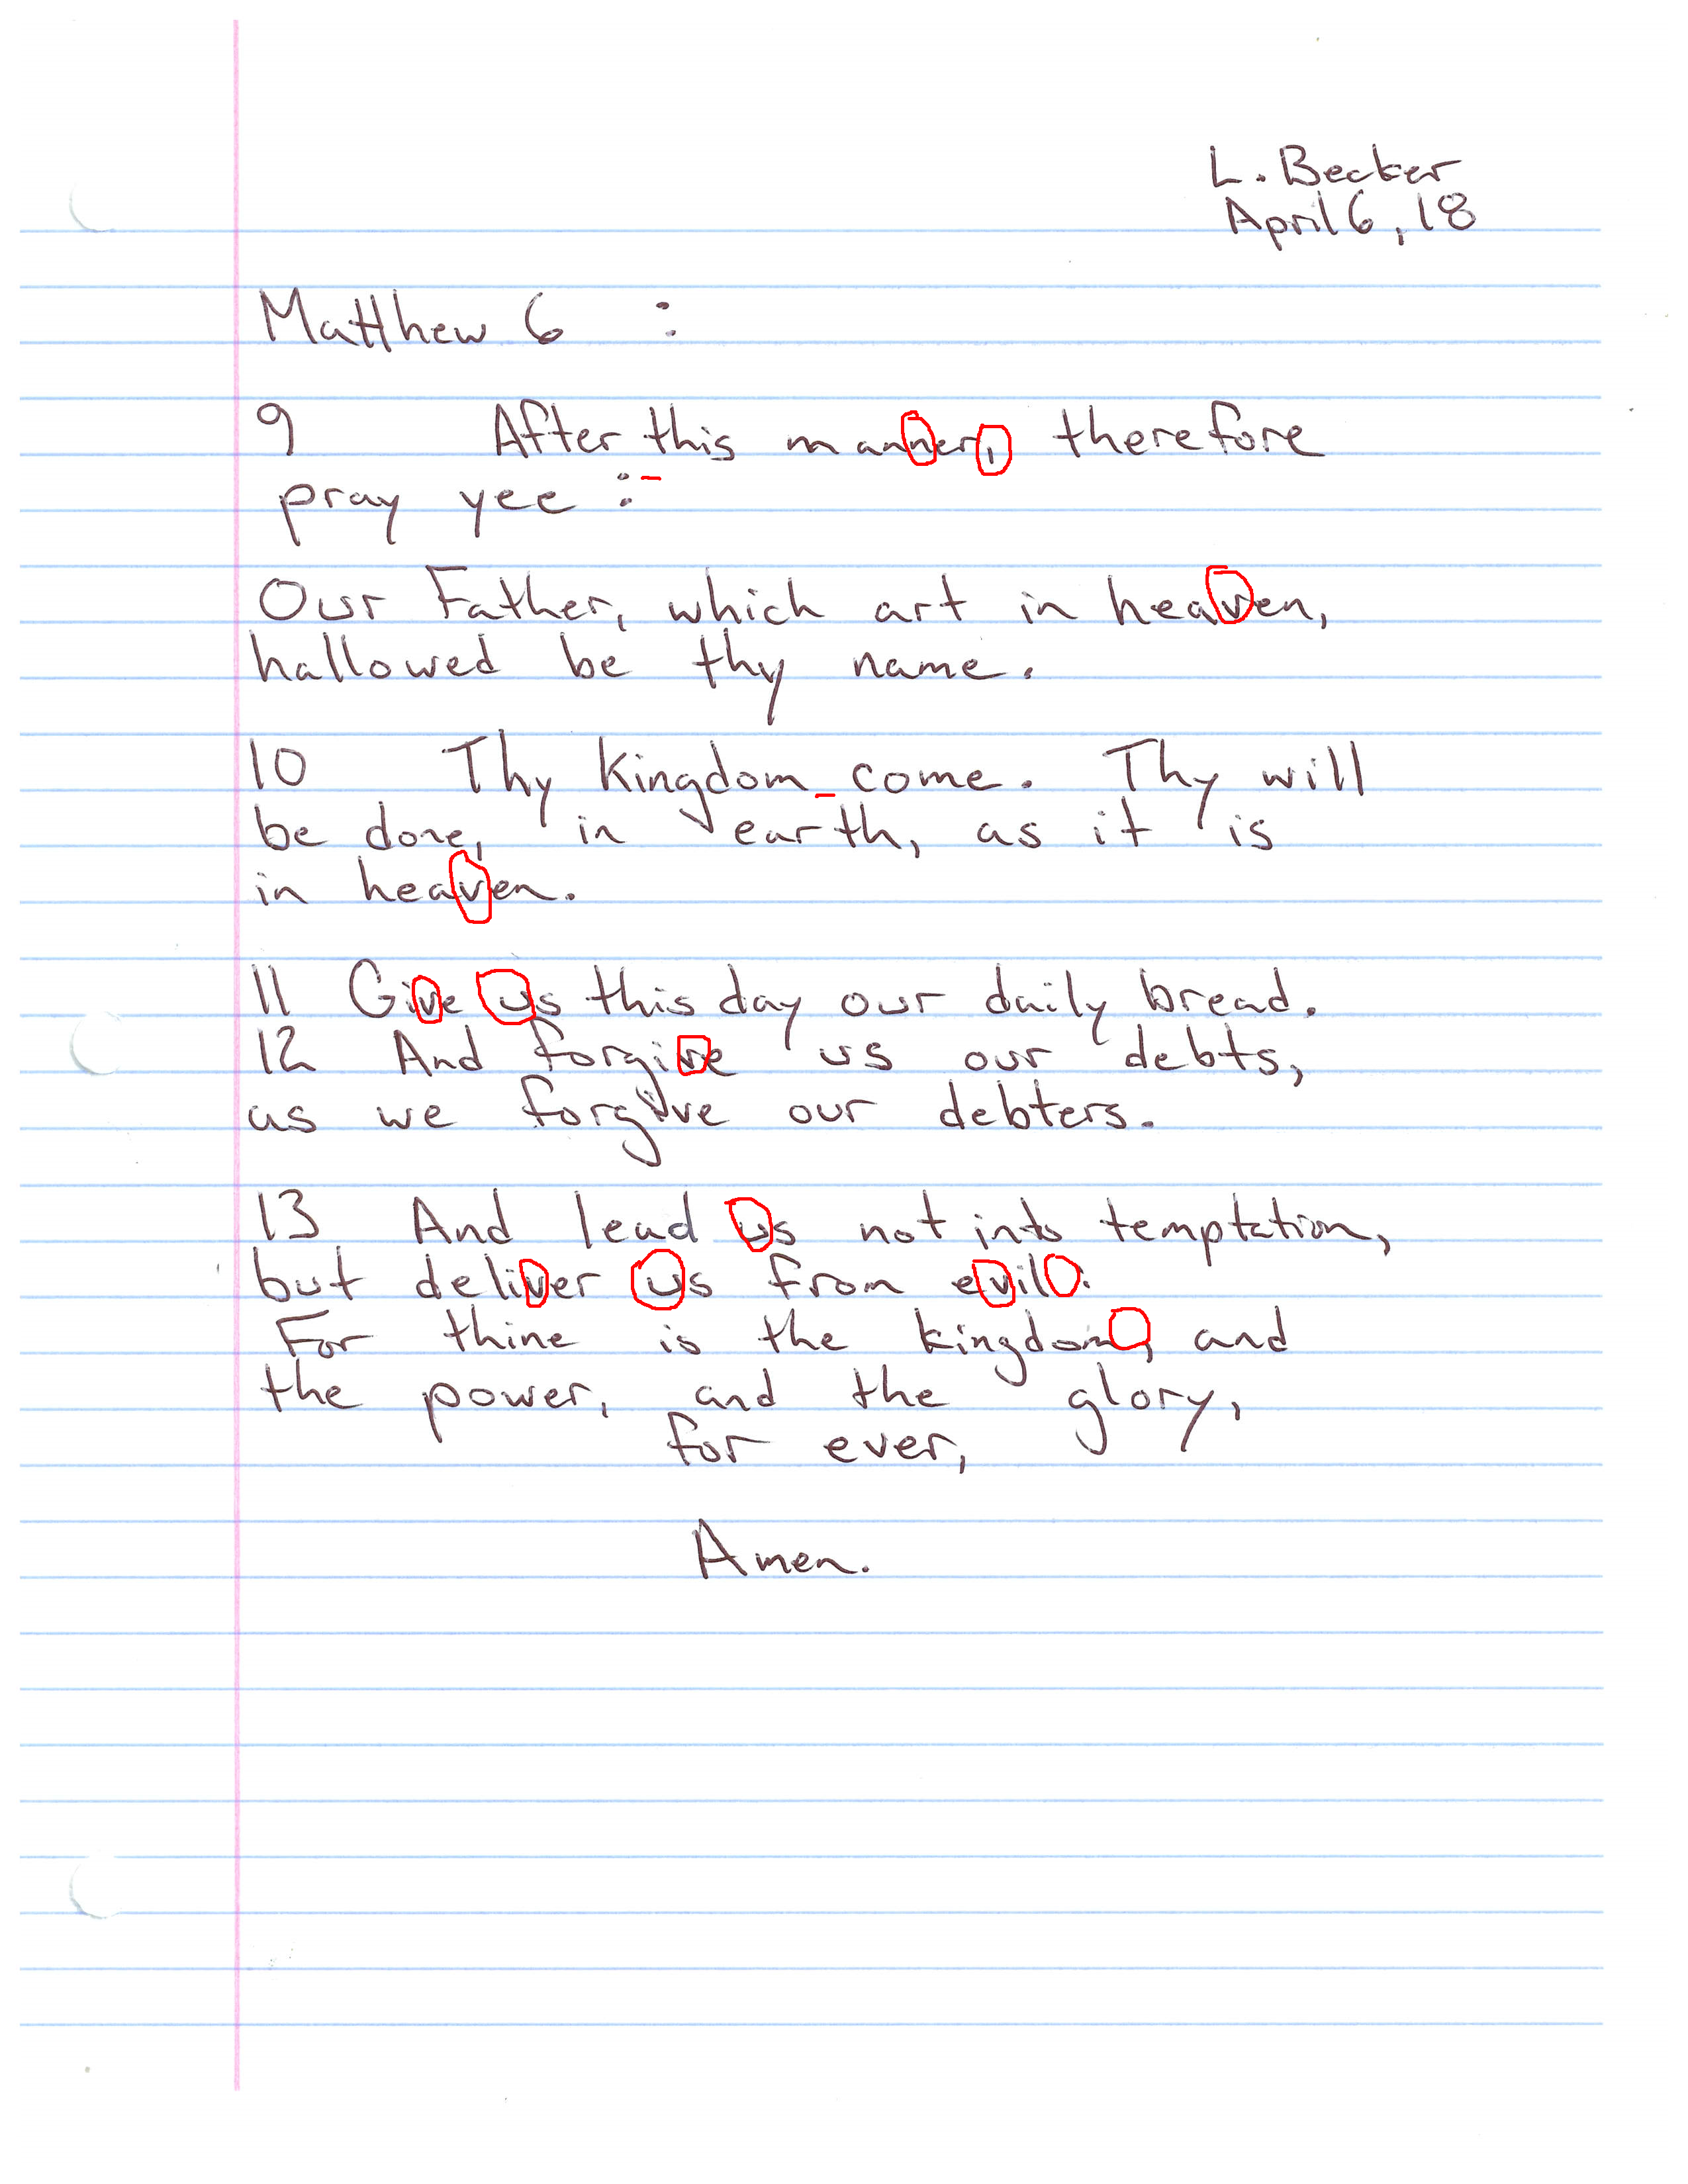 L. Becker
April 6, 18
Matthew 6 :
9 After this manner, therefore
pray yee :-
Our Father, which art in heaven,
hallowed be thy name.
10 Thy kingdom come. Thy will
be done, in earth, as it is
in heaven.
11 Give us this day our daily bread.
12 And forgive us our debts,
as we forgive our debters.
13 And lead us not into temptation,
but deliver us from evil:
For thine is the kingdom, and
the power, and the glory,
for ever,
Amen.